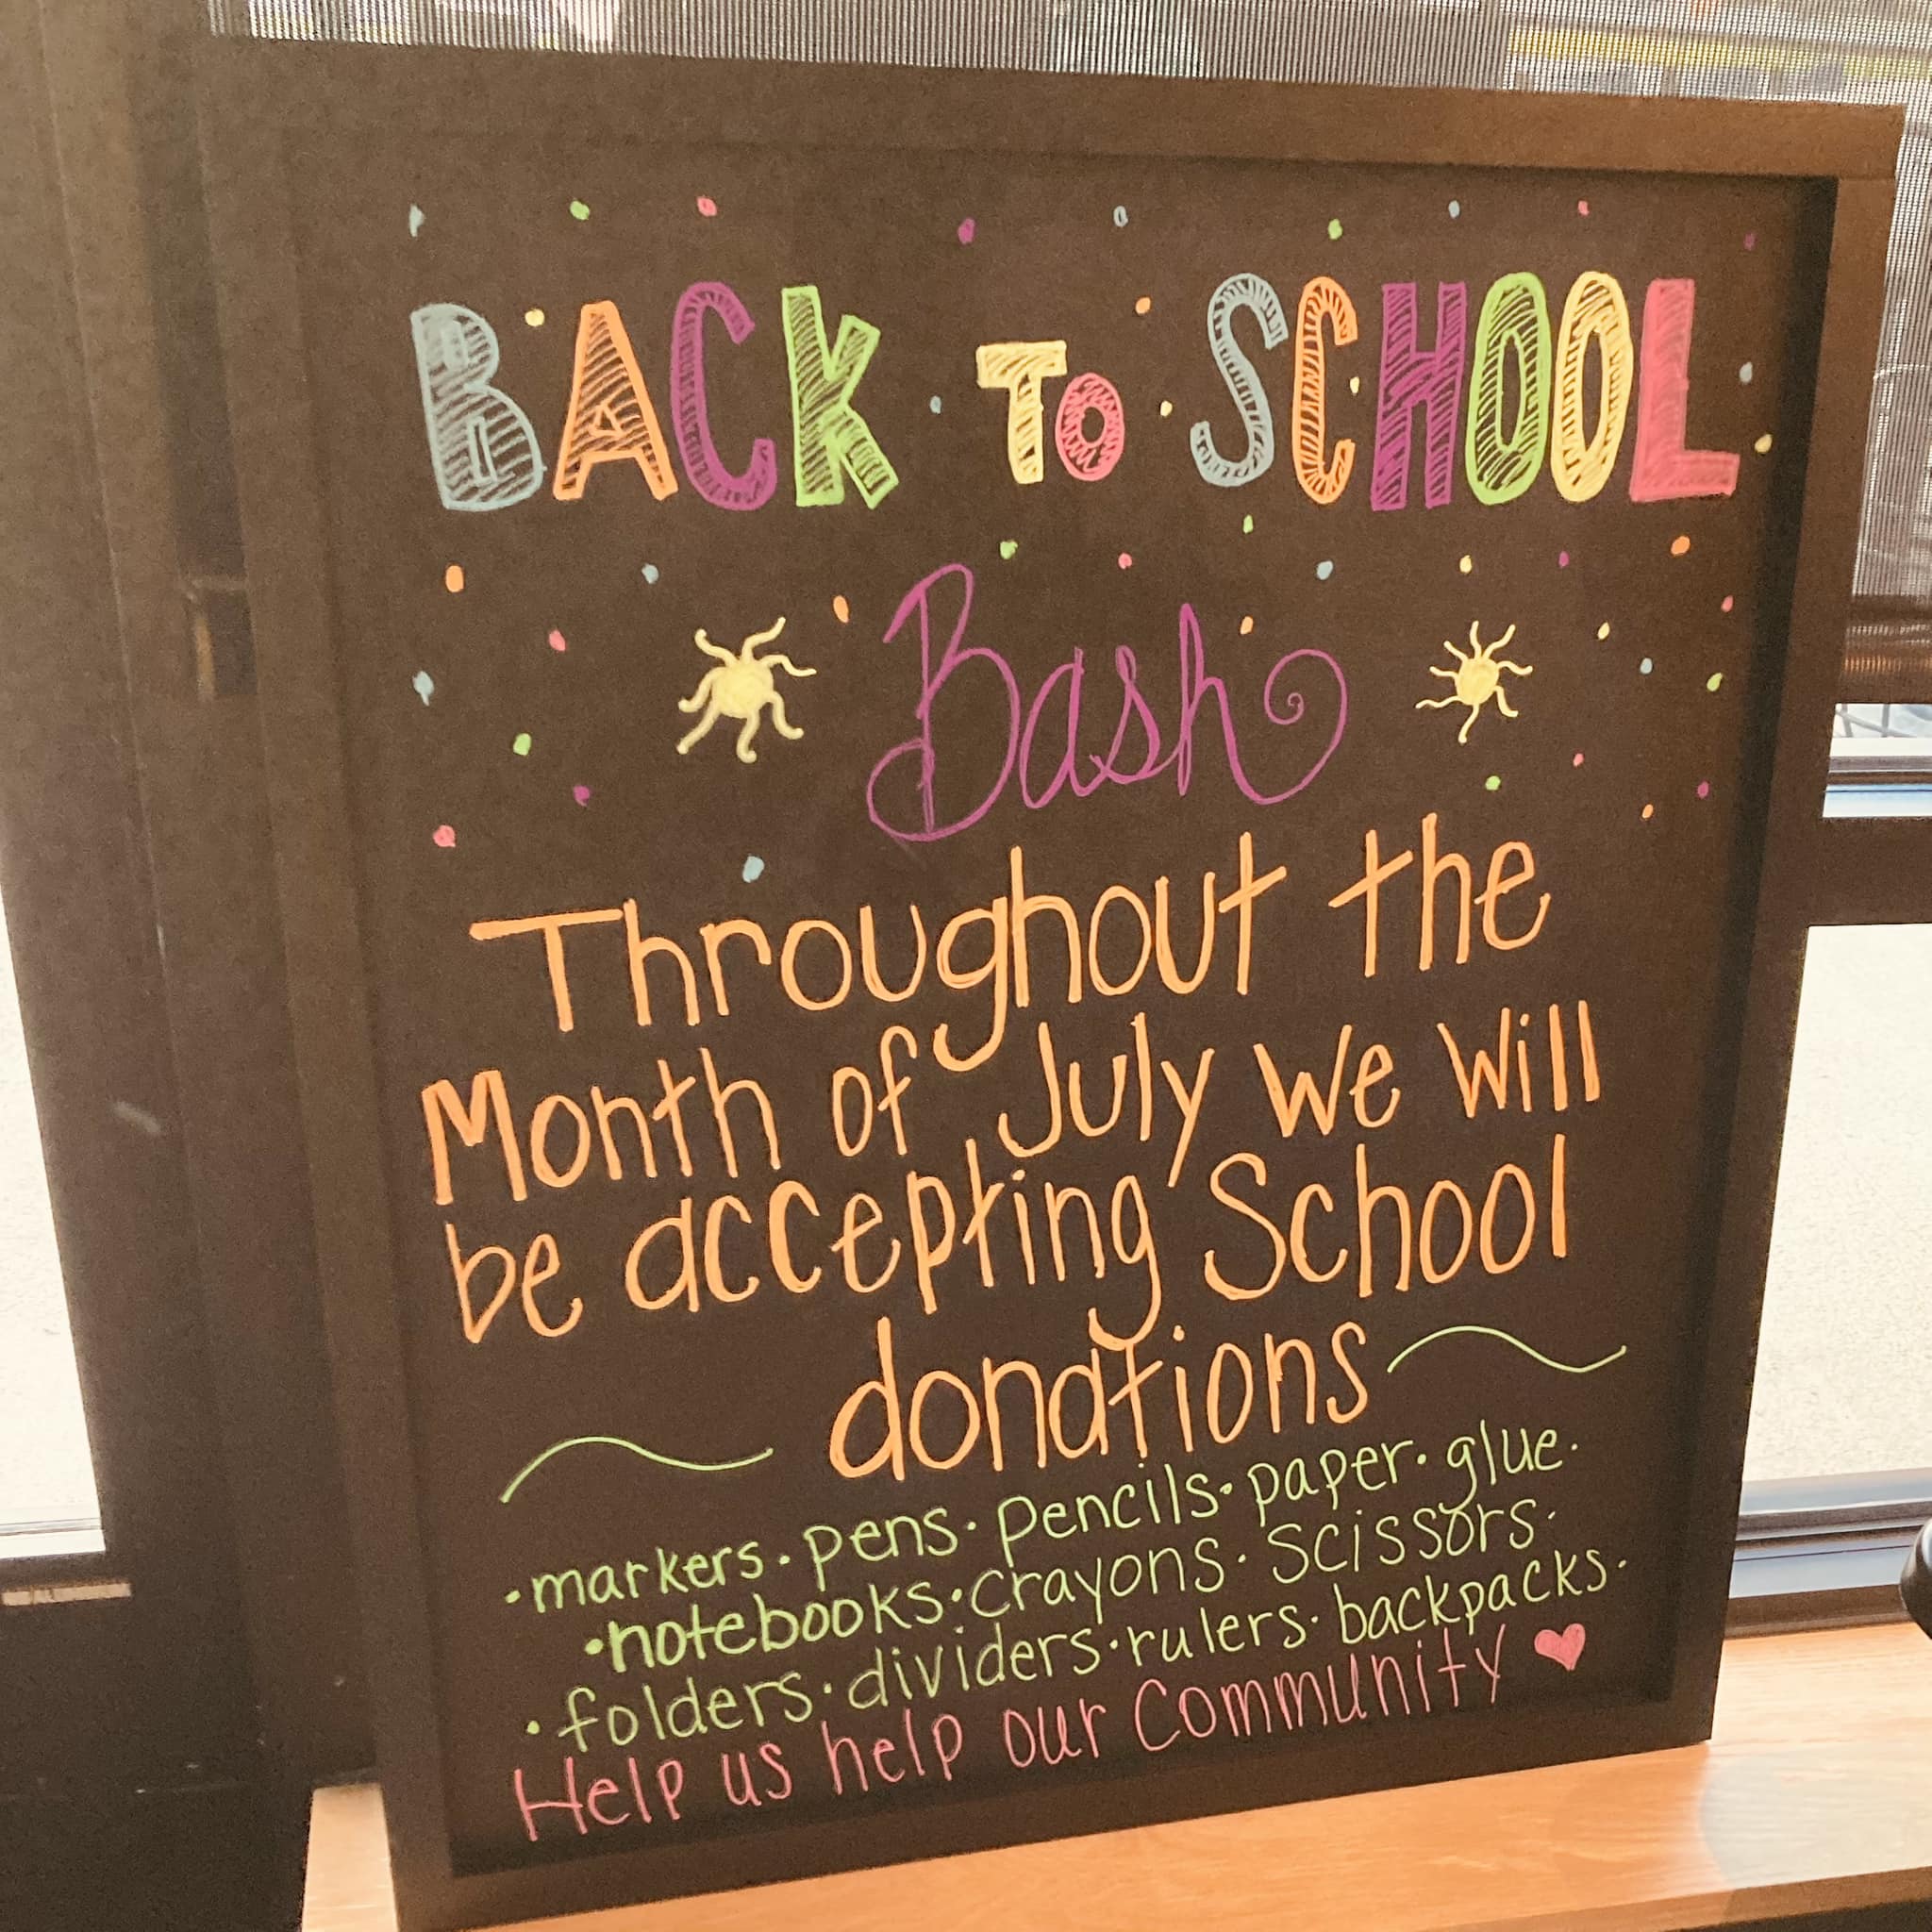 BACK TO SCHOOL
Bash
Throughout the
Month of July we will
be accepting School
donations
·markers·pens·pencils·paper·glue·
·notebooks·crayons·scissors·
·folders·dividers·rulers·backpacks·
Help us help our Community ♥